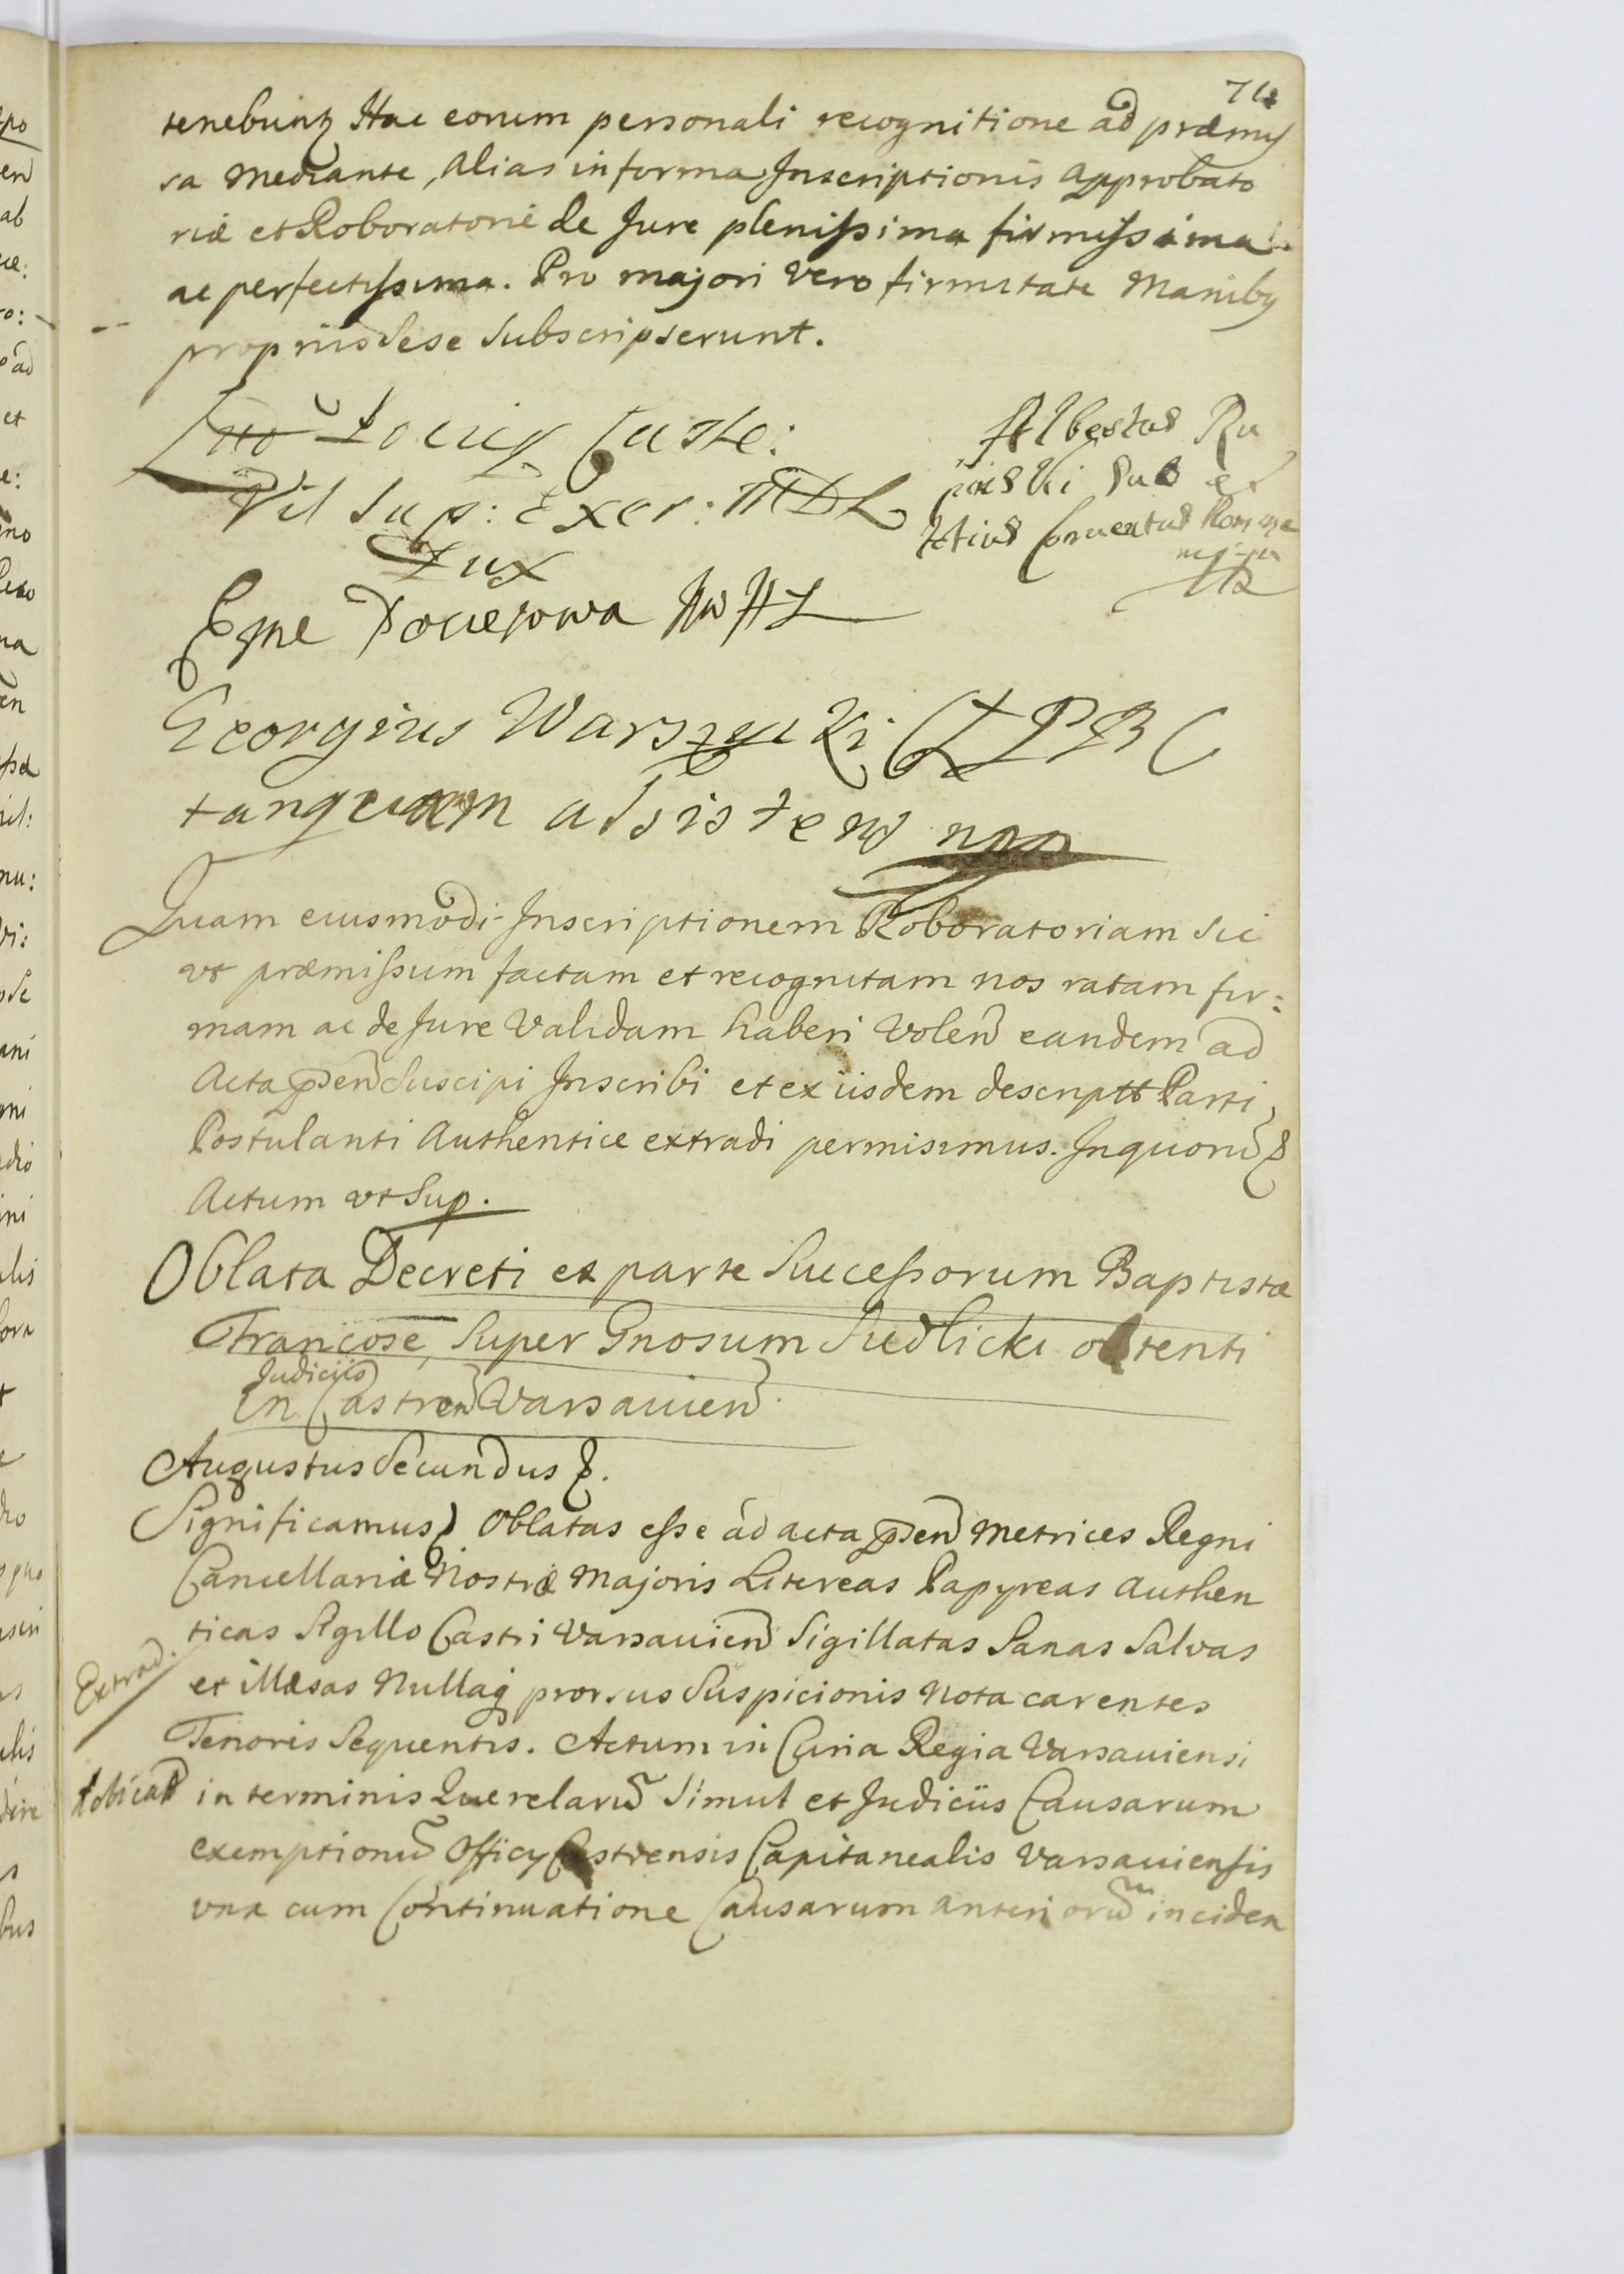 74
tenebuntꝫ Hac eorum personali recognitione ad præmis
sa Mediante, Alias in forma Inscriptionis Approbato
riæ et Roboratoriæ de Jure plenissima firmissima
ac perfectissima. Pro majori Vero firmitate Maniby
propriis Sese Subscripserunt.
Pociey Caste:
Vit Sup: Exer: MDL
Dux
Albertus Ru
Sub
Conventus
Eme Pocieiowa
Georgius Warszycki
tanquam assistens mpp
Quam eiusmodi Inscriptionem Roboratoriam Sic
vt præmissum factam et recognitam nos ratam fir:
mam ac de Jure Validam haberi Volen̄ eandem ad
Acta p̄sen̄ Suscipi Inscribi et ex iisdem descriptt Parti
Postulanti Authentice extradi permisimus. In quorū &
Actum vt Sup.
Oblata Decreti ex parte Successorum Baptistæ
Francose, Super Gnosum Siedlicki obtenti
Judiciis
In Castren̄ Varsauien̄.
Augustus Secundus &.
Significamus & Oblatas esse ad acta p̄sen̄ Metrices Regni
Cancellariæ Nostræ Majoris Litereas Papyreas Authen
ticas Sigillo Castri Varsauien̄ Sigillatas Sanas Salvas
Extrad.
et illæsas Nullaq prorsus Suspicionis Nota carentes
Tenoris Sequentis. Actum in Curia Regia Varsauiensi
in terminis Querelarū Simul et Judiciis Causarum
exemptionū Officy Castrensis Capitanealis Varsauiensis
vna cum Continuatione Causarum anteriorū inciden